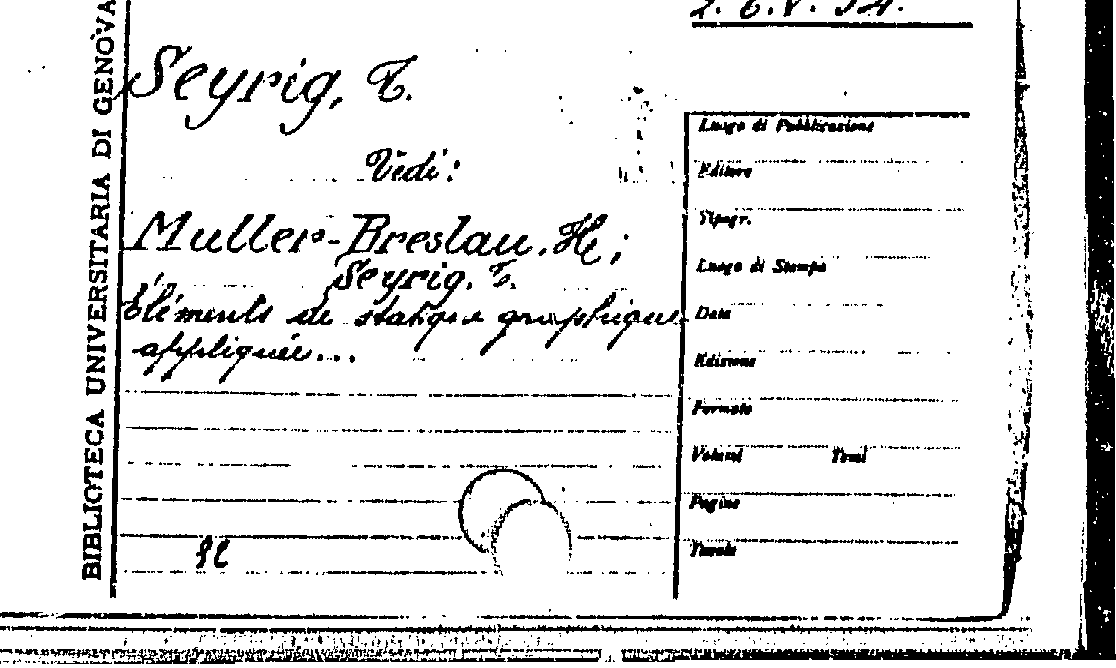 2. C.V. 34.
BIBLIOTECA UNIVERSITARIA DI GENOVA
Seyrig, T.
Vedi:
Muller-Breslau. H.;
Seyrig. T.
Éléments de statique graphique
appliquée...
Luogo di Pubblicazione
Editore
Tipogr.
Luogo di Stampa
Data
Edizione
Formato
Volumi Tomi
Pagine
Tavole